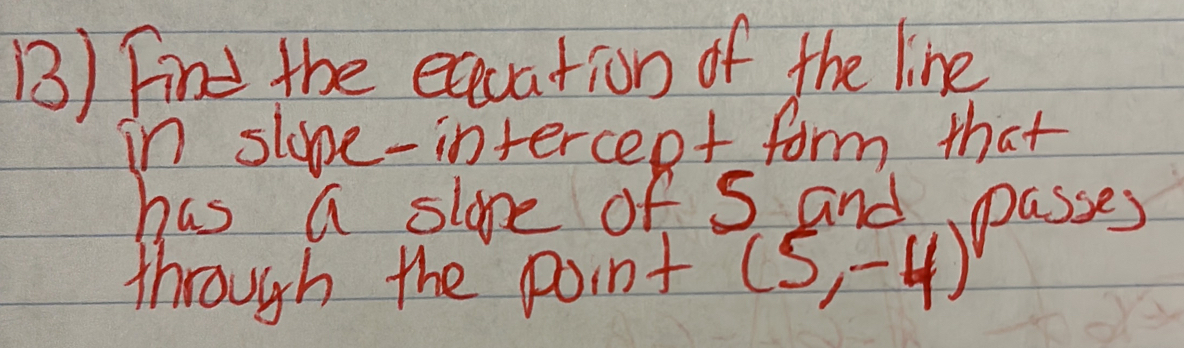 13) Find the equation of the line
in slope-intercept form that
has a slope of 5 and passes
through the point (5,-4)